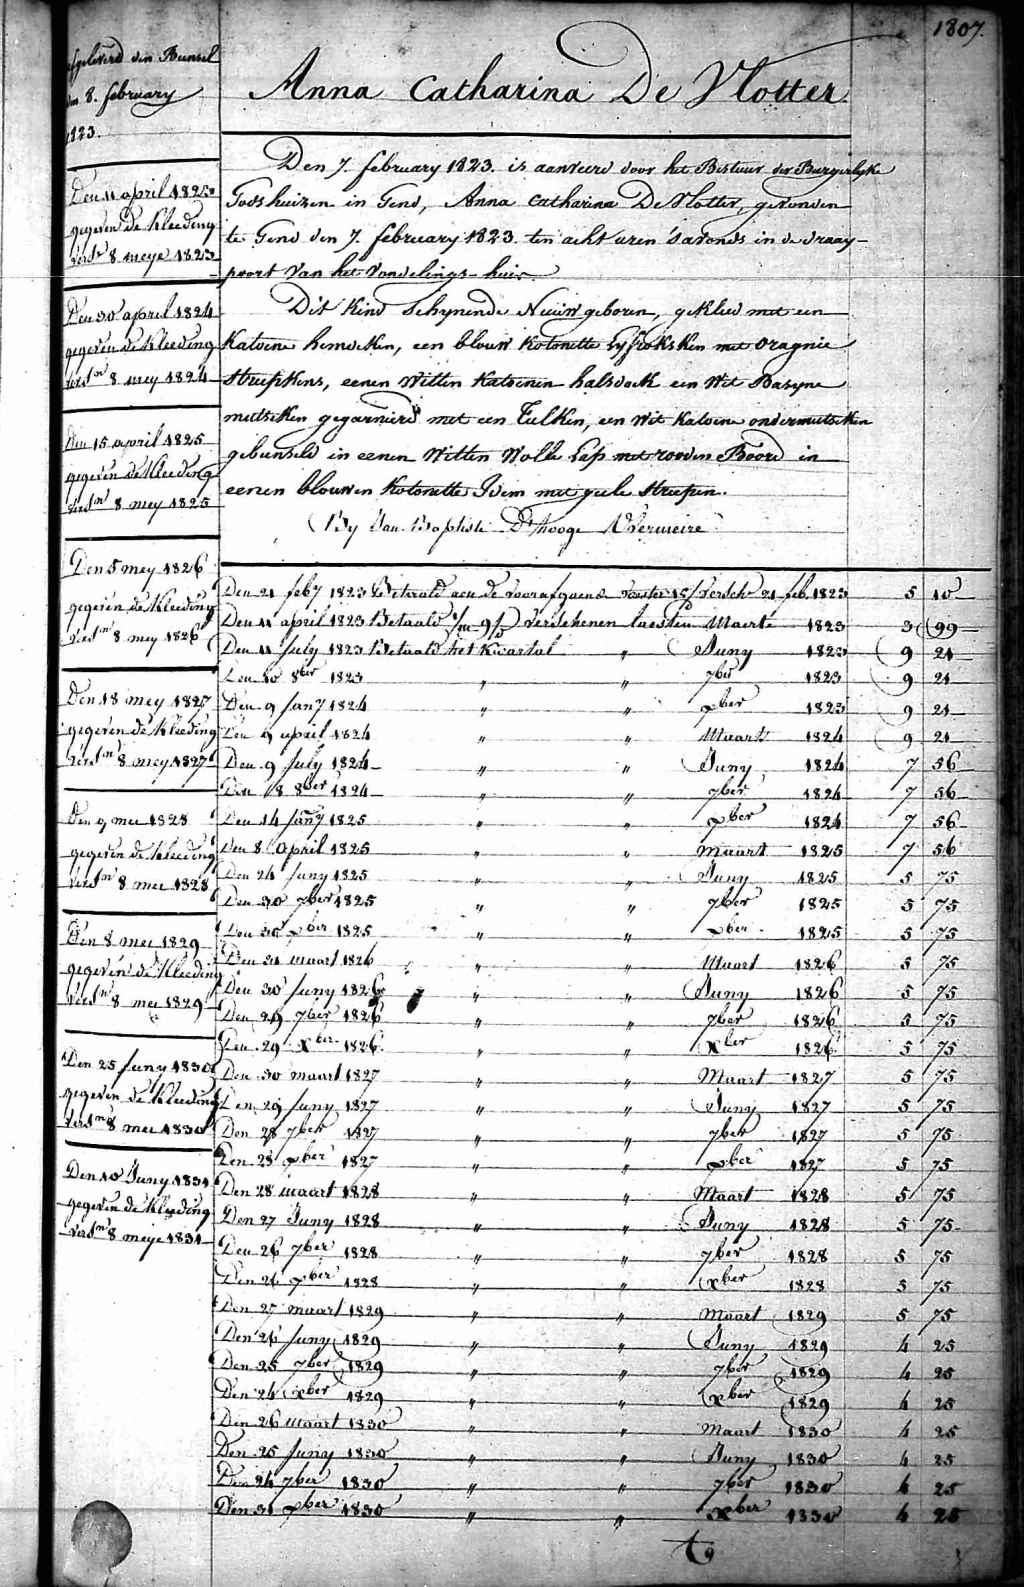 1807.
afgeleverd den Bunsel
den 8. february
1823.
Den 11 april 1823
gegeven de Kleeding
verst 8 meye 1823
Den 30 april 1824
gegeven de Kleeding
verstn 8 mey 1824
Den 15 april 1825
gegeven de Kleeding
verstn 8 mey 1825
Den 5 mey 1826
gegeven de Kleeding
verstn 8 mey 1826
Den 18 mey 1827
gegeven de Kleeding
verstn 8 mey 1827
Den 9 mei 1828
gegeven de Kleeding
verstn 8 mei 1828
Den 8 mei 1829
gegeven de Kleeding
verstn 8 mei 1829
Den 25 juny 1830
gegeven de Kleeding
verstn 8 mei 1830
Den 10 Juny 1831
gegeven de Kleeding
verstn 8 meije 1831
Anna Catharina De Vlotter.
Den 7. february 1823. is aanveerd door het Bestuur der Burgerlyke
Godshuizen in Gend, Anna Catharina De Vlotter, gevonden
te Gend den 7. february 1823. ten acht uren 's avonds in de draay-
poort van het vondelings-huis
Dit Kind schynende Nieuw geboren, gekleed met een
Katoene hemdeken, een blouw Kotonette Lyfroksken met oragnie
streepkens, eenen witten Katoenen halsdoek een wit Basyne
mutseken gegarnierd met een Tulken, een wit Katoene ondermutseken
gebunseld in eenen witten wolle Lap met rooden Boord in
eenen blouwen Kotonette Idem met geele streepen.
(By Jan Baptiste D'hooge Vermeire
Den 21 feby 1823 Betaald aen de voorafgaende voester 15/ versch. 21 feb. 1823 5 10
Den 11 april 1823 Betaald verschenen laesten Maerte 1823 3 99
Den 11 July 1823 Betaald het Kwartal " Juny 1823 9 21
Den 10 8ber 1823 " " 7ber 1823 9 21
Den 9 Jany 1824 " " xber 1823 9 21
Den 9 april 1824 " " Maart 1824 9 21
Den 9 July 1824 " " Juny 1824 7 56
Den 8 8ber 1824 " " 7ber 1824 7 56
Den 14 Jany 1825 " " xber 1824 7 56
Den 8 April 1825 " " Maart 1825 7 56
Den 24 Juny 1825 " " Juny 1825 5 75
Den 30 7ber 1825 " " 7ber 1825 5 75
Den 30 xber 1825 " " xber 1825 5 75
Den 31 maart 1826 " " Maart 1826 5 75
Den 30 Juny 1826 " " Juny 1826 5 75
Den 29 7ber 1826 " " 7ber 1826 5 75
Den 29 xber 1826 " " Xber 1826 5 75
Den 30 maart 1827 " " Maart 1827 5 75
Den 29 Juny 1827 " " Juny 1827 5 75
Den 28 7ber 1827 " " 7ber 1827 5 75
Den 28 xber 1827 " " xber 1827 5 75
Den 28 maart 1828 " " Maart 1828 5 75
Den 27 Juny 1828 " " Juny 1828 5 75
Den 26 7ber 1828 " " 7ber 1828 5 75
Den 26 xber 1828 " " xber 1828 5 75
Den 27 maart 1829 " " Maart 1829 5 75
Den 26 Juny 1829 " " Juny 1829 4 25
Den 25 7ber 1829 " " 7ber 1829 4 25
Den 24 xber 1829 " " xber 1829 4 25
Den 26 maart 1830 " " Maart 1830 4 25
Den 25 Juny 1830 " " Juny 1830 4 25
Den 24 7ber 1830 " " 7ber 1830 4 25
Den 31 xber 1830 " " xber 1830 4 25